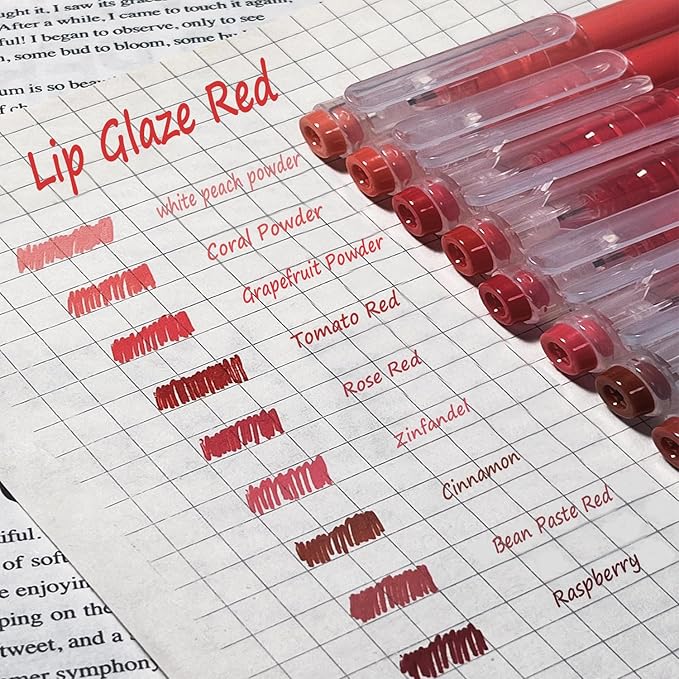 ught it, I saw its
After a while, I came to touch it again
ful! I began to observe, only to see
, some bud to bloom, some
um is so
of
Lip Glaze Red
white peach powder
Coral Powder
Grapefruit Powder
Tomato Red
Rose Red
Zinfandel
Cinnamon
Bean Paste Red
Raspberry
iful.
of soft
e enjoyin
ping on the
tweet, and a
mer symphony